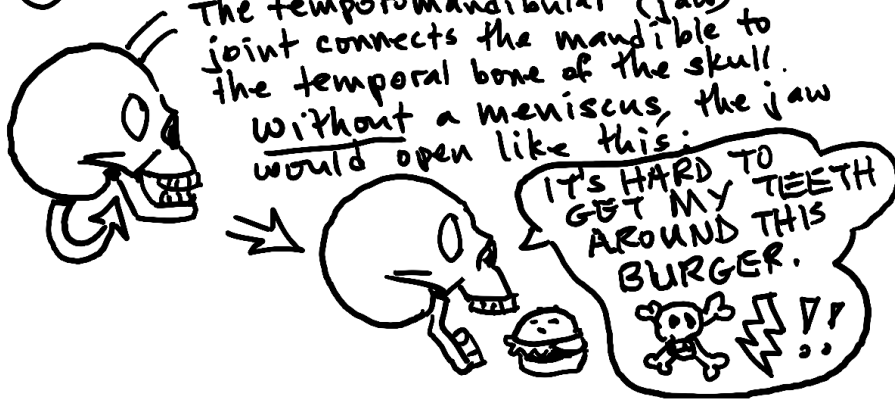 The temporomandibular (jaw)
joint connects the mandible to
the temporal bone of the skull.
without a meniscus, the jaw
would open like this:
IT'S HARD TO
GET MY TEETH
AROUND THIS
BURGER.
!!